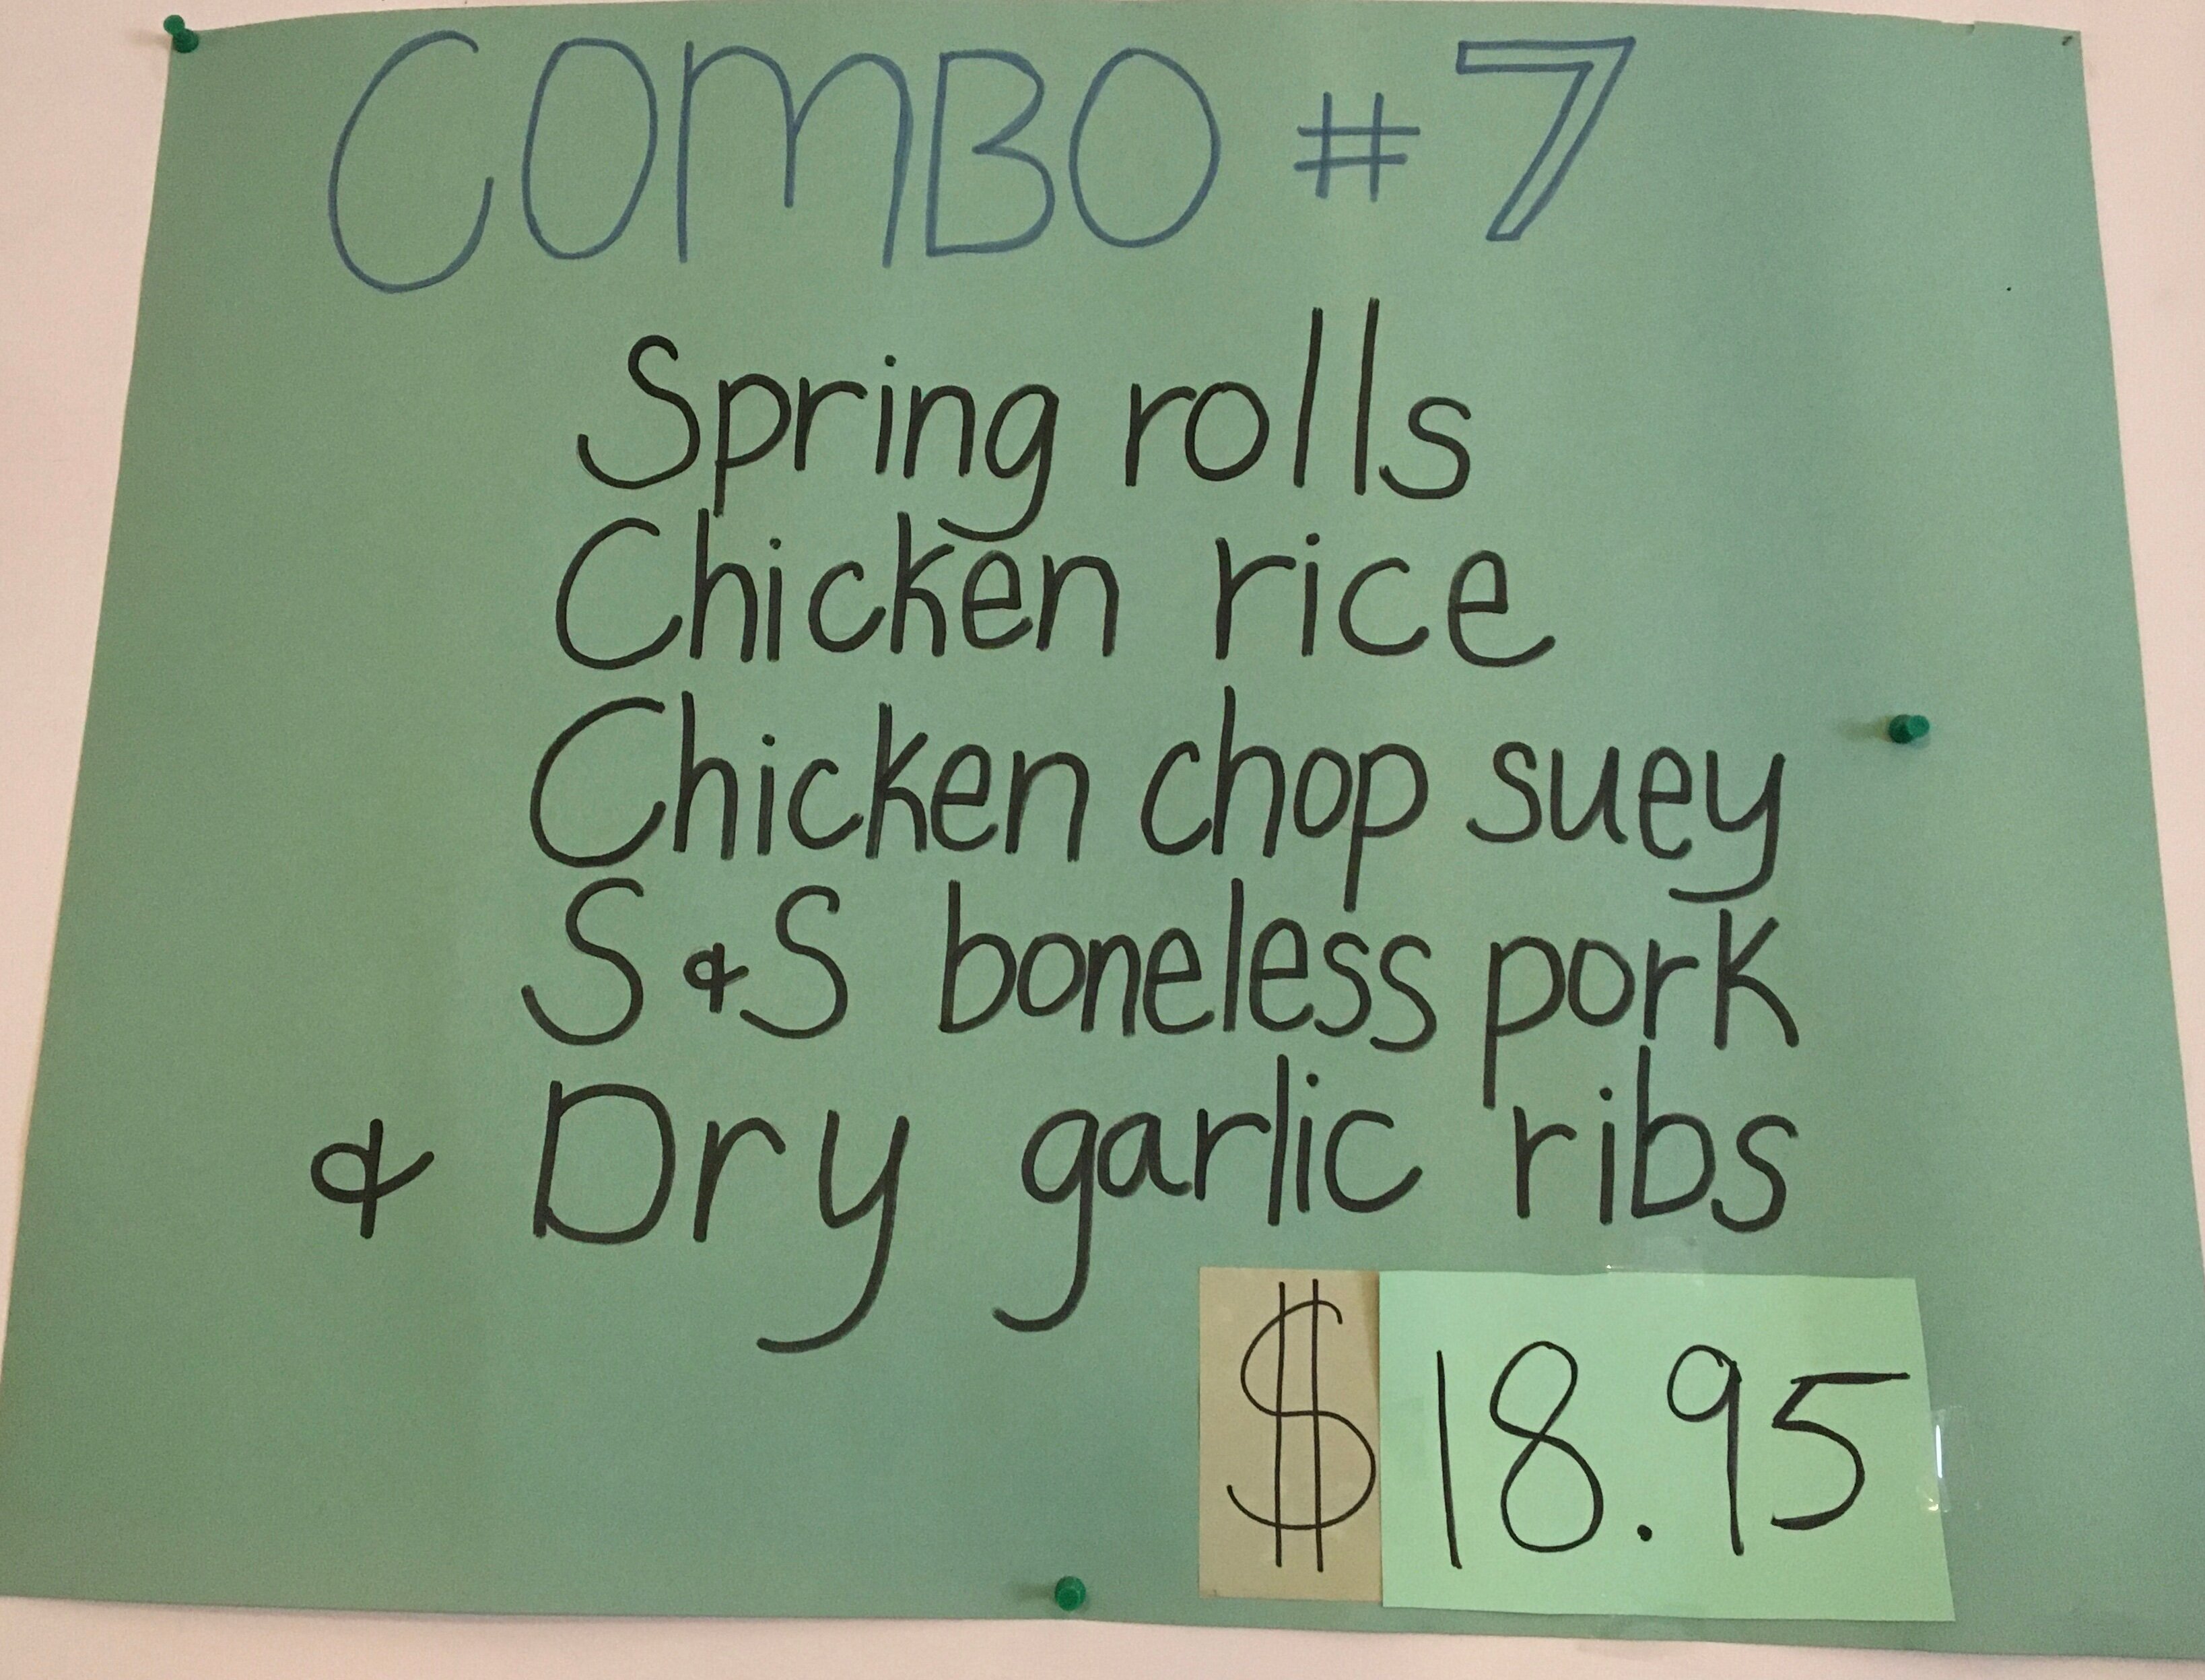 COMBO #7
Spring rolls
Chicken rice
Chicken chop suey
S & S boneless pork
& Dry garlic ribs
$18.95